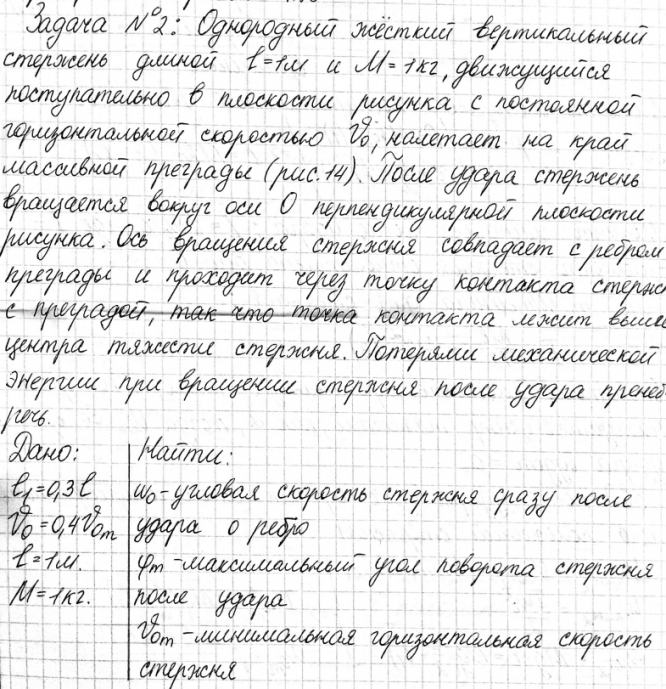 Задача №2: Однородный жёсткий вертикальный
стержень длиной l=1м и M=1кг, движущийся
поступательно в плоскости рисунка с постоянной
горизонтальной скоростью V₀, налетает на край
массивной преграды (рис.14). После удара стержень
вращается вокруг оси О перпендикулярной плоскости
рисунка. Ось вращения стержня совпадает с ребром
преграды и проходит через точку контакта стержн
с преградой, так что точка контакта лежит выше
центра тяжести стержня. Потерями механической
энергии при вращении стержня после удара пренеб
речь.
Дано: Найти:
l₁=0,3l ω₀-угловая скорость стержня сразу после
V₀=0,4V₀m удара о ребро
l=1м. φm-максимальный угол поворота стержня
M=1кг. после удара
V₀m-минимальная горизонтальная скорость
стержня